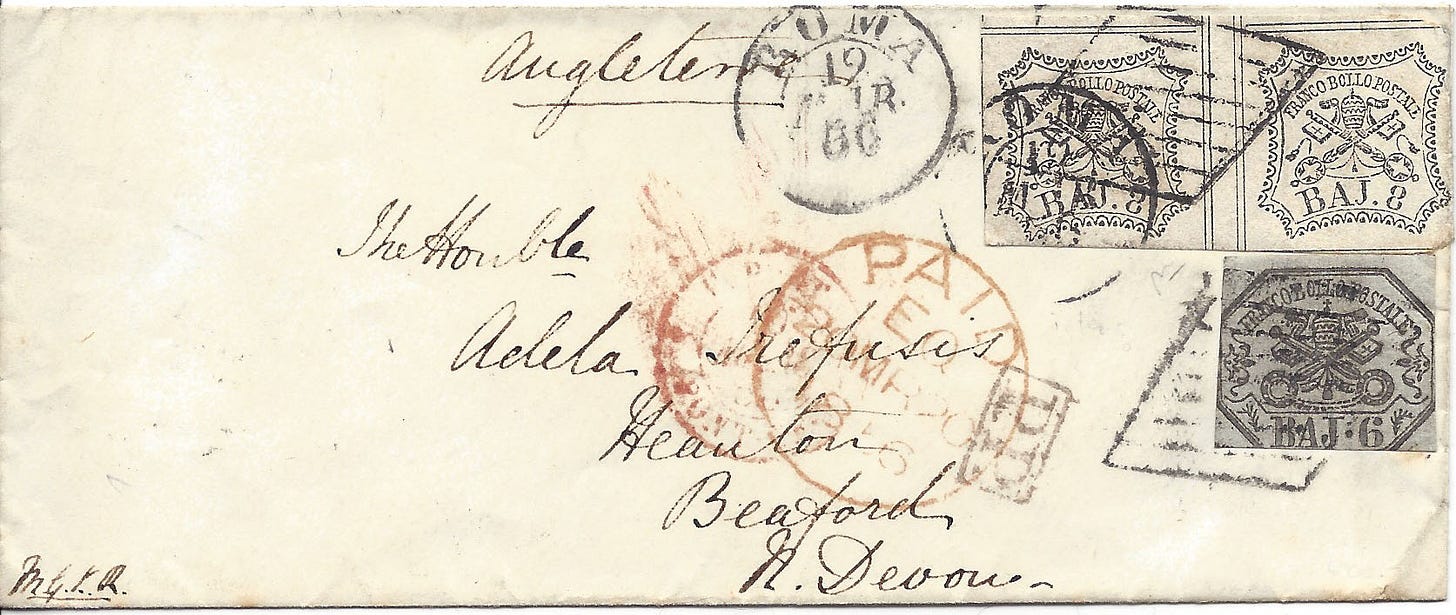 Angleterre
ROMA
19
60
FRANCO BOLLO POSTALE
BAJ. 8
FRANCO BOLLO POSTALE
BAJ. 8
The Honble
Adela Trefusis
PAID
FRANCO BOLLO POSTALE
BAJ: 6
PD
Heanton
Beaford
N. Devon